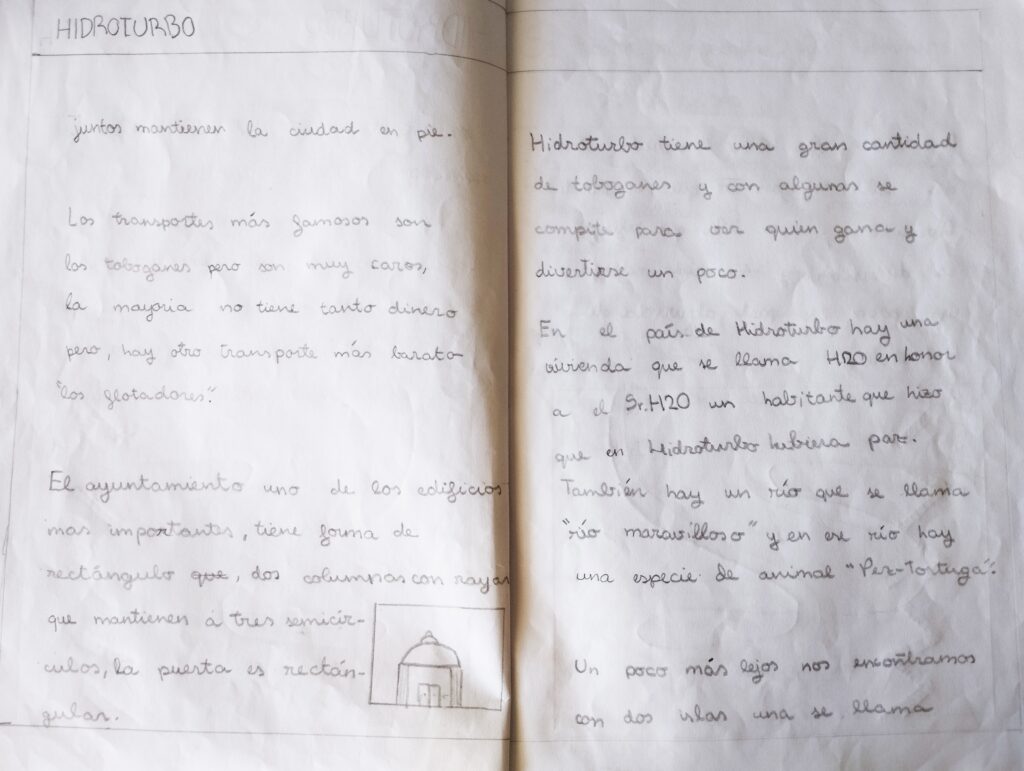 HIDROTURBO
juntos mantienen la ciudad en pie.
Los transportes más famosos son
los toboganes pero son muy caros,
la mayoria no tiene tanto dinero
pero, hay otro transporte más barato
"los flotadores".
El ayuntamiento uno de los edificios
mas importantes, tiene forma de
rectángulo que, dos columnas con rayas
que mantienen a tres semicír-
culos, la puerta es rectán-
gular.
Hidroturbo tiene una gran cantidad
de toboganes y con algunas se
compite para ver quien gana y
divertirse un poco.
En el país de Hidroturbo hay una
vivienda que se llama H2O en honor
a el Sr.H2O un habitante que hizo
que en Hidroturbo hubiera paz.
También hay un río que se llama
"río maravilloso" y en ese río hay
una especie de animal "Pez-Tortuga".
Un poco más lejos nos encontramos
con dos islas una se llama